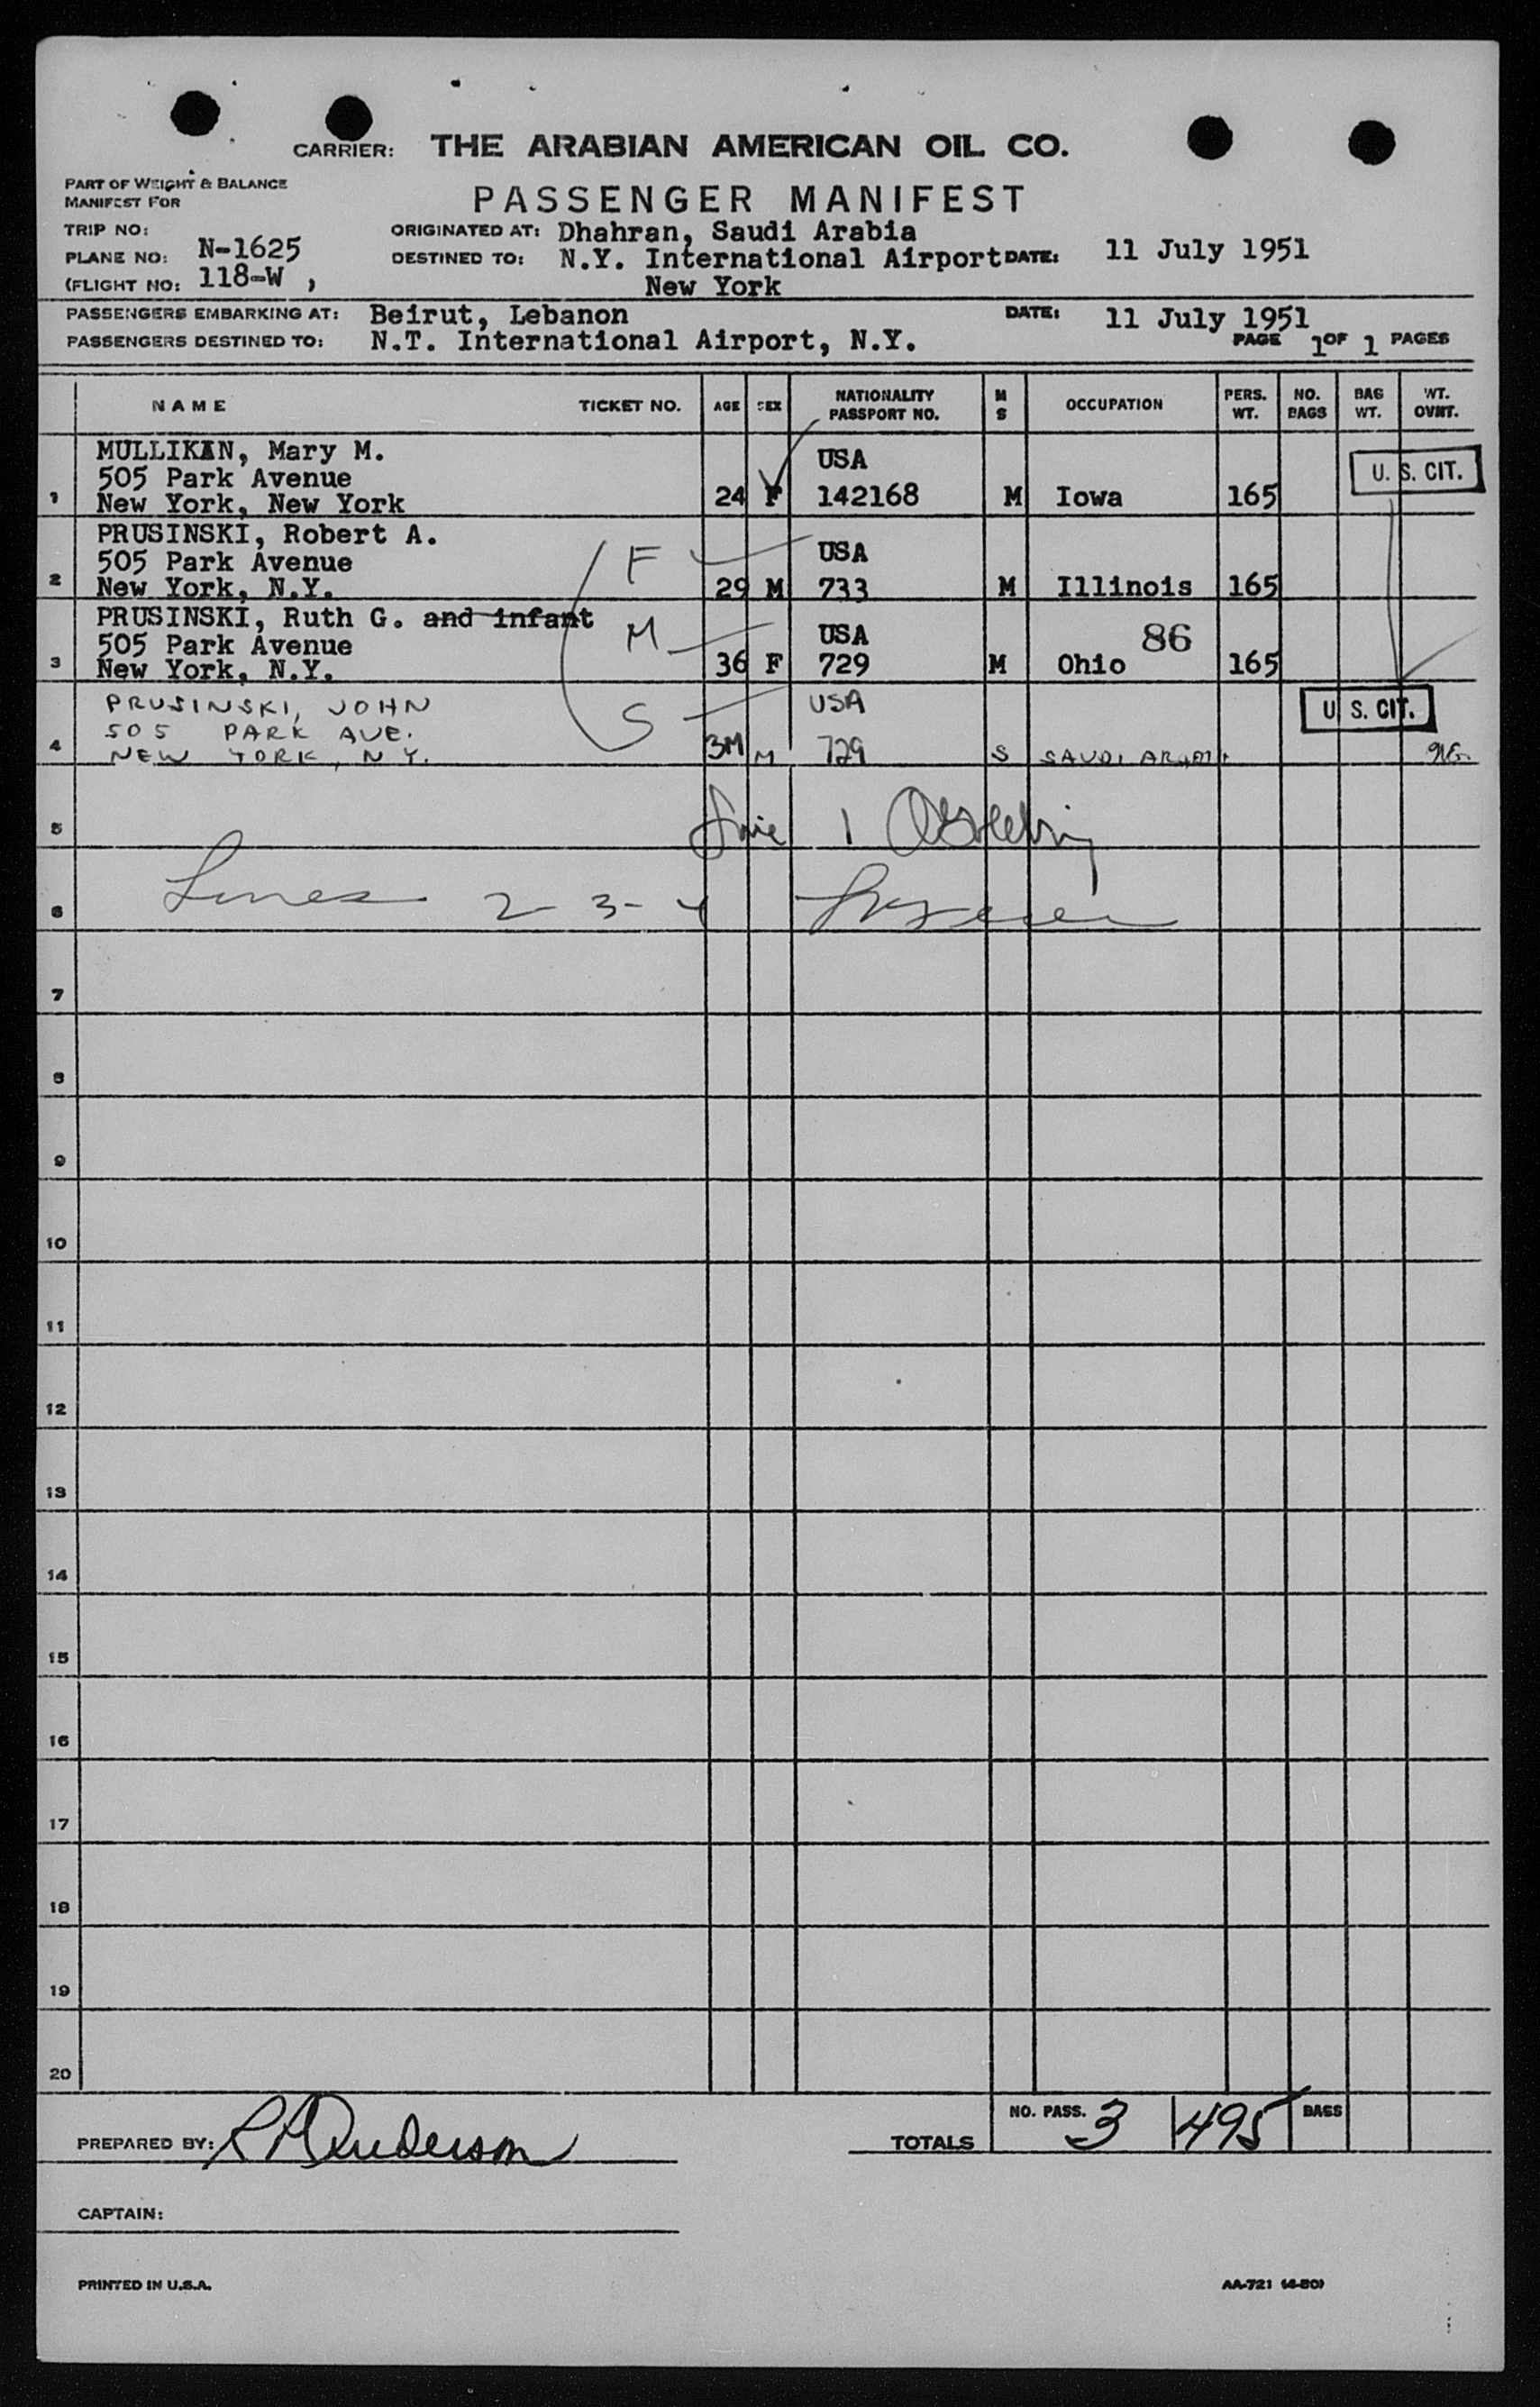 CARRIER: THE ARABIAN AMERICAN OIL CO.
PART OF WEIGHT & BALANCE
MANIFEST FOR
PASSENGER MANIFEST
TRIP NO:
ORIGINATED AT: Dhahran, Saudi Arabia
PLANE NO: N-1625
DESTINED TO: N.Y. International Airport DATE: 11 July 1951
(FLIGHT NO: 118-W ,
New York
PASSENGERS EMBARKING AT: Beirut, Lebanon DATE: 11 July 1951
PASSENGERS DESTINED TO: N.T. International Airport, N.Y. PAGE 1 OF 1 PAGES
NAME TICKET NO. AGE SEX NATIONALITY PASSPORT NO. M S OCCUPATION PERS. WT. NO. BAGS BAG WT. WT. OVWT.
MULLIKIN, Mary M.
505 Park Avenue USA U. S. CIT.
1 New York, New York 24 F 142168 M Iowa 165
PRUSINSKI, Robert A.
505 Park Avenue F USA
2 New York, N.Y. 29 M 733 M Illinois 165
PRUSINSKI, Ruth G. and infant
505 Park Avenue M USA 86
3 New York, N.Y. 36 F 729 M Ohio 165
PRUSINSKI, JOHN USA
505 PARK AVE. S U. S. CIT.
4 NEW YORK, N.Y. 3M M 729 S SAUDI ARABIA
5 Line 1
6 Lines 2-3-4
7
8
9
10
11
12
13
14
15
16
17
18
19
20
PREPARED BY: R A Anderson TOTALS NO. PASS. 3 495 BAGS
CAPTAIN:
PRINTED IN U.S.A. AA-721 (4-50)